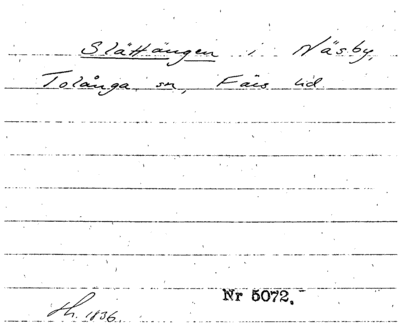 Slättängen i Näsby,
Tolånga sn, Färs hd
Nr 5072.
1836.